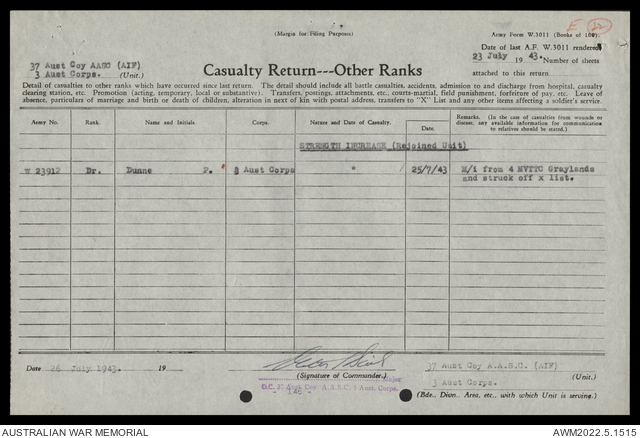 (Margin for Filing Purposes)
Army Form W.3011 (Books of 100).
E 22
Date of last A.F. W.3011 rendered
23 July 1943. Number of sheets
attached to this return
37 Aust Coy AASC (AIF)
3 Aust Corps. (Unit.)
Casualty Return---Other Ranks
Detail of casualties to other ranks which have occurred since last return. The detail should include all battle casualties, accidents, admission to and discharge from hospital, casualty
clearing station, etc. Promotion (acting, temporary, local or substantive): Transfers, postings, attachments, etc., courts-martial, field punishment, forfeiture of pay, etc. Leave of
absence, particulars of marriage and birth or death of children, alteration in next of kin with postal address, transfers to "X" List and any other items affecting a soldier's service.
Army No. Rank. Name and Initials. Corps. Nature and Date of Casualty. Date. Remarks. (In the case of casualties from wounds or
disease, any available information for communication
to relatives should be stated.)
STRENGTH INCREASE (Rejoined Unit)
W 23912 Dr. Dunne P. 3 Aust Corps " 25/7/43 M/i from 4 MVTTC Graylands
and struck off x list.
Date 26 July 1943. 19
(Signature of Commander.) Major
O.C. 37 Aust Coy. A.A.S.C. 3 Aust. Corps.
37 Aust Coy A.A.S.C. (AIF)
(Unit.)
3 Aust Corps.
(Bde., Divn., Area, etc., with which Unit is serving.)
AUSTRALIAN WAR MEMORIAL
AWM2022.5.1515